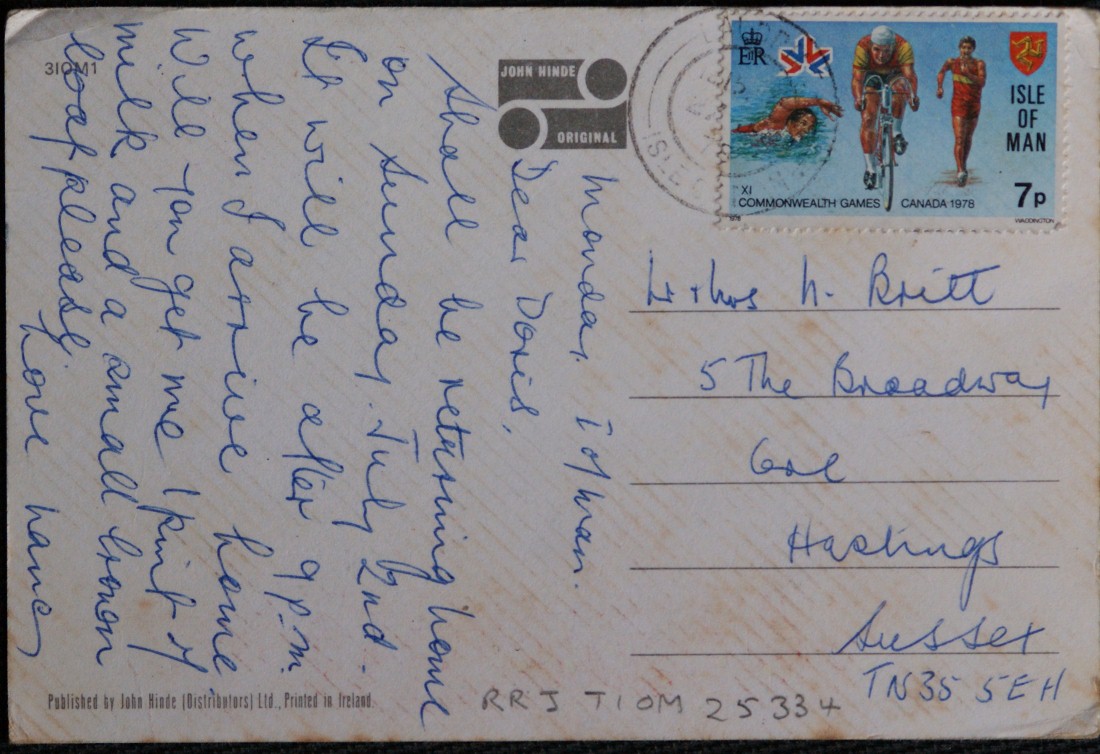 3IOM1
JOHN HINDE
ORIGINAL
ISLE
ER
ISLE
OF
MAN
XI
COMMONWEALTH GAMES CANADA 1978
7p
1978
WADDINGTON
Monday. I of Man.
Dear Doris,
Shall be returning home
on Sunday. July 2nd.
It will be after 9 p.m.
when I arrive home
Will you get me 1 pint of
milk and a small brown
loaf please.
Love Nance
Mr & Mrs N. Britt
5 The Broadway
Ore
Hastings
Sussex
TN35 5EH
Published by John Hinde (Distributors) Ltd., Printed in Ireland.
RRJ TIOM 25334